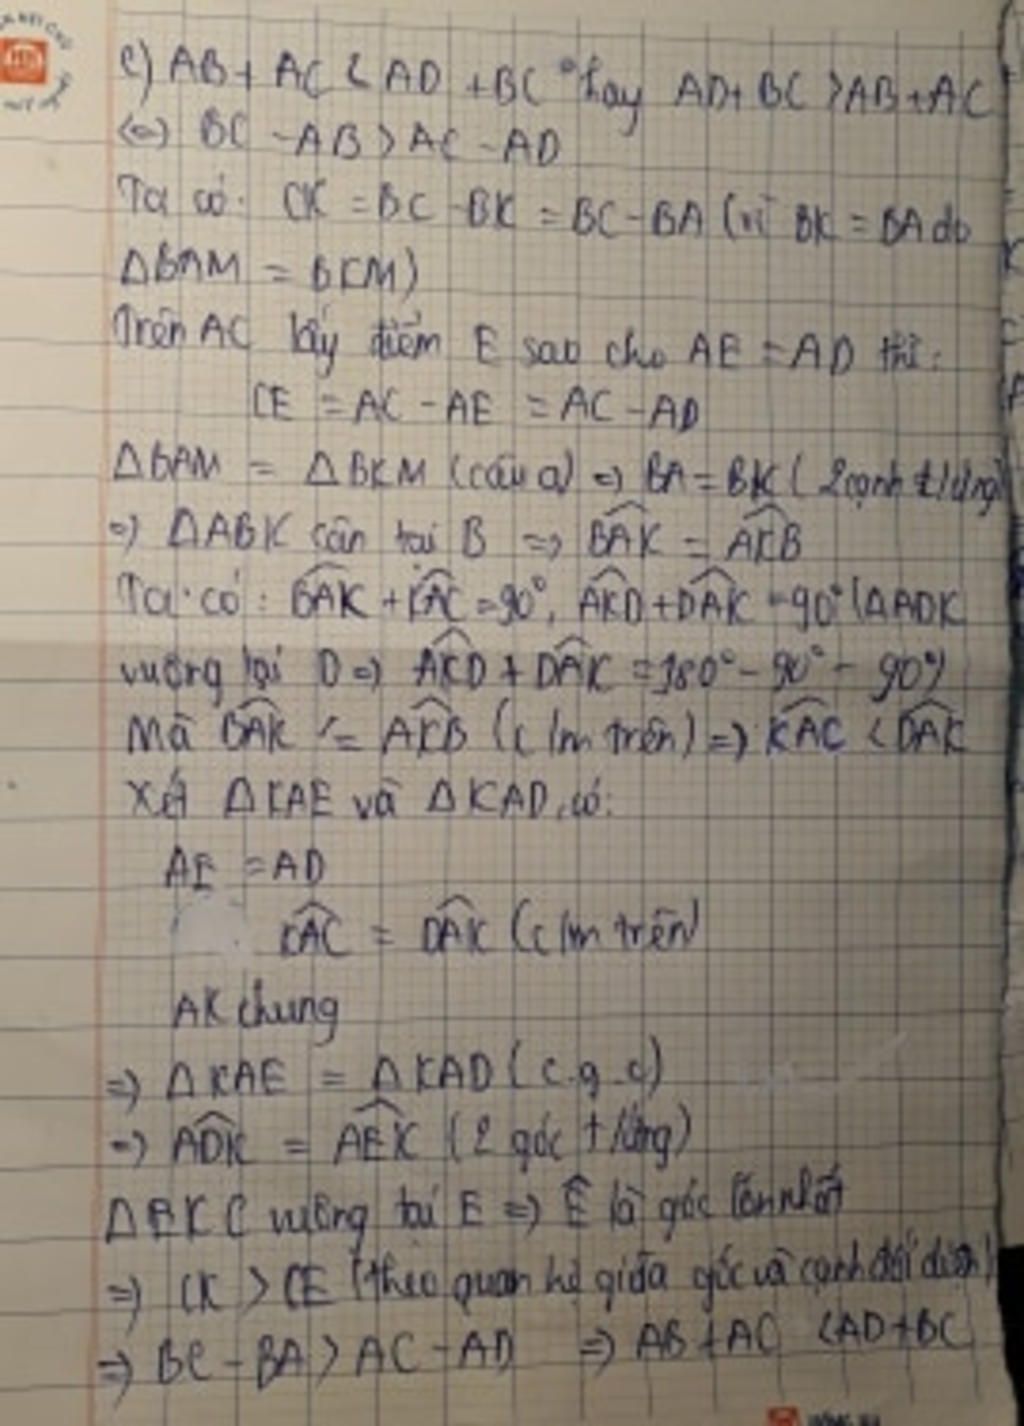 c) AB + AC < AD + BC hay AD + BC > AB + AC
(=) BC - AB > AC - AD
Ta có: CK = BC - BK = BC - BA (vì BK = BA do
ΔBAM = BKM)
Trên AC lấy điểm E sao cho AE = AD thì:
CE = AC - AE = AC - AD
ΔBAM = ΔBKM (câu a) => BA = BK (2 cạnh t/ứng)
=> ΔABK cân tại B => \widehat{BAK} = \widehat{AKB}
Ta có: \widehat{BAK} + \widehat{KAC} = 90°, \widehat{AKD} + \widehat{DAK} = 90° (ΔADK
vuông tại D => \widehat{AKD} + \widehat{DAK} = 180° - 90° - 90°)
Mà \widehat{BAK} = \widehat{AKB} (c/m trên) => \widehat{KAC} < \widehat{DAK}
Xét ΔKAE và ΔKAD, có:
AE = AD
\widehat{KAC} = \widehat{DAK} (c/m trên)
AK chung
=> ΔKAE = ΔKAD (c.g.c)
=> \widehat{ADK} = \widehat{AEK} (2 góc t/ứng)
ΔEKC vuông tại E => Ê là góc lớn nhất
=> CK > CE (theo quan hệ giữa góc và cạnh đối diện)
=> BC - BA > AC - AD => AB + AC < AD + BC